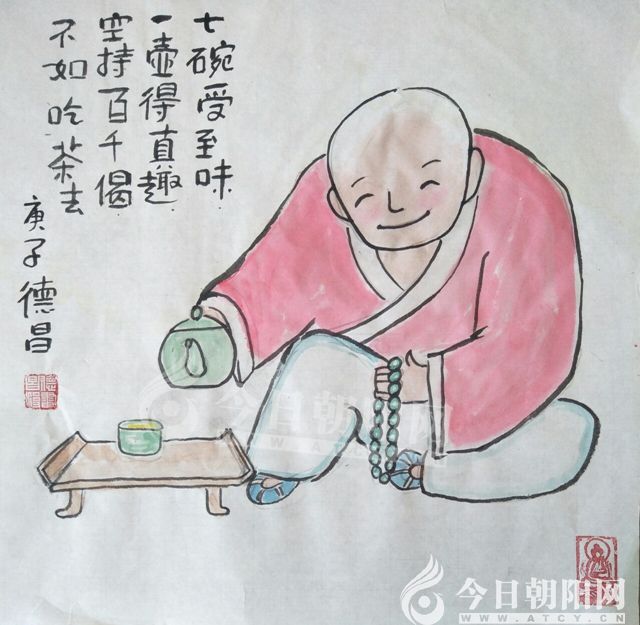 七碗受至味
一壺得真趣
空持百千偈
不如吃茶去
庚子德昌
今日朝阳网
WWW.ATCY.CN
今日朝阳网
WWW.ATCY.CN